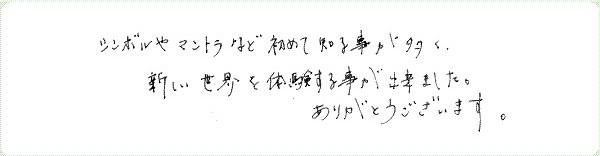 シンボルやマントラなど初めて知る事が多く、
新しい世界を体験する事が出来ました。
ありがとうございます。